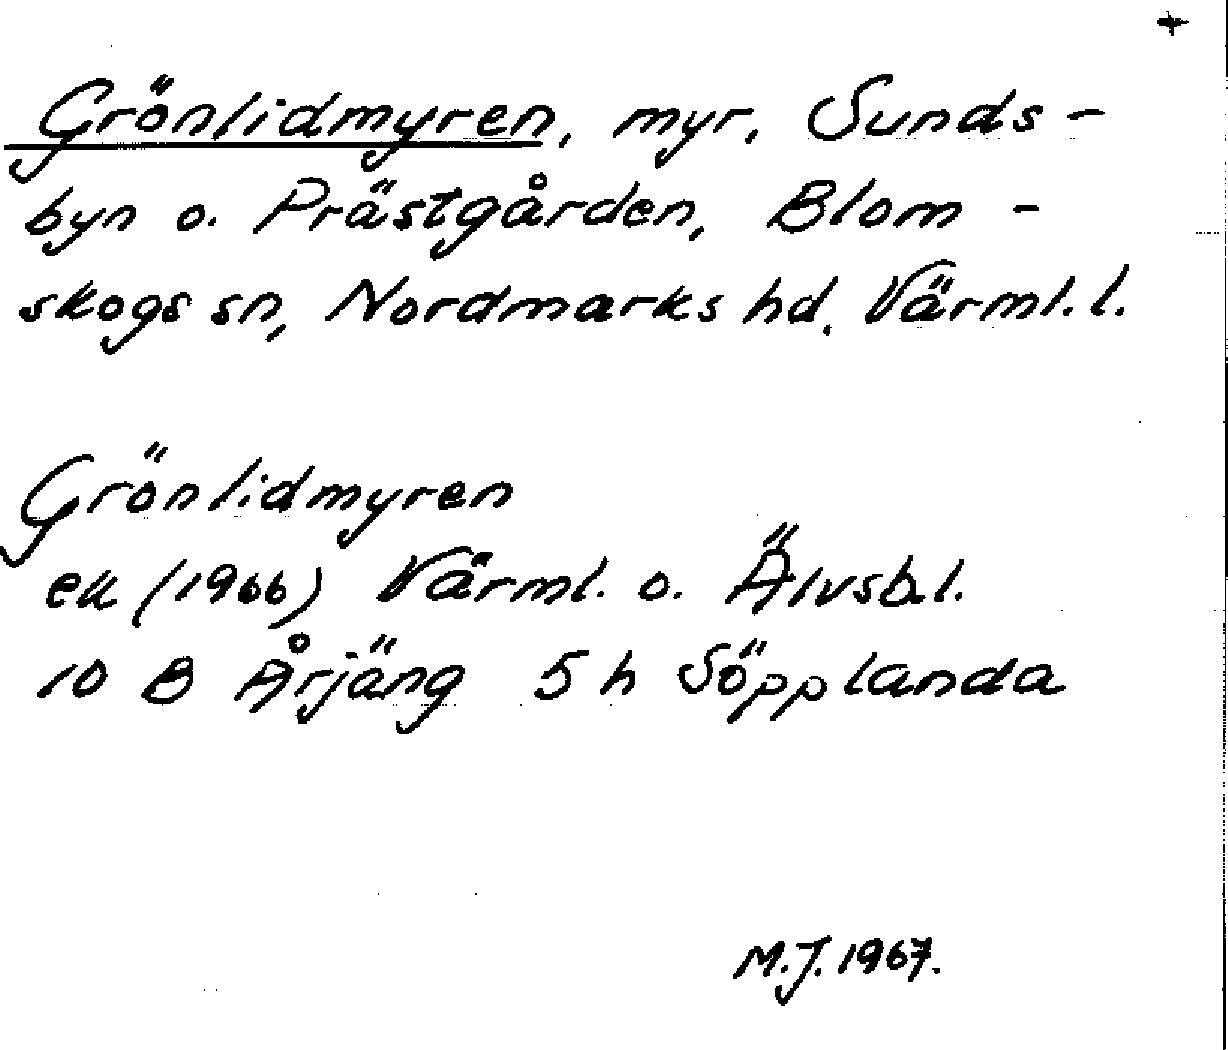 Grönlidmyren, myr, Sunds-
byn o. Prästgården, Blom-
skogs sn, Nordmarks hd, Värml. l.
Grönlidmyren
ek (1966) Värml. o. Älvsb.l.
10 B Årjäng 5 h Söpplanda
M.J. 1967.